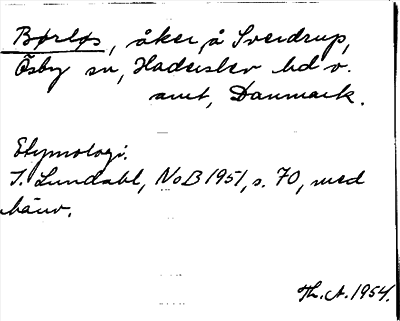 Børløs, åker å Sverdrup,
Ösby sn, Haderslev hd o.
amt, Danmark.
Etymologi.
I. Lundahl, NoB 1951, s. 70, med
hänv.
Th. A. 1954.